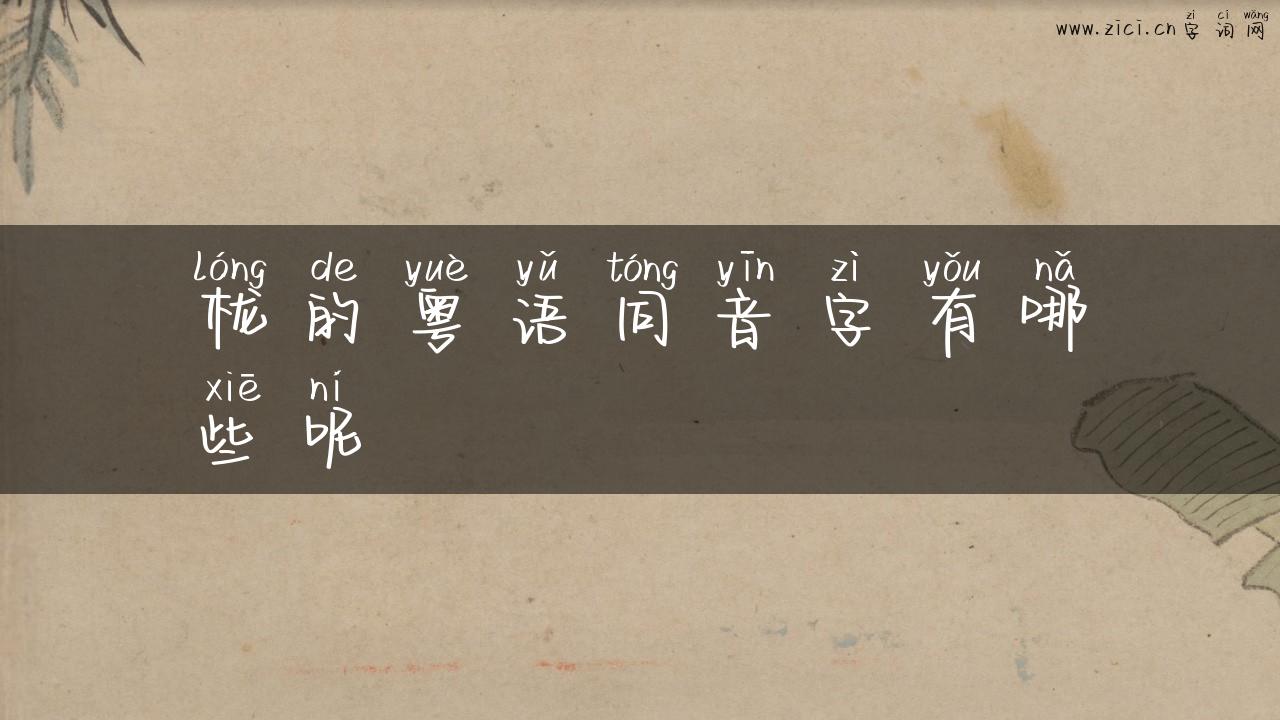 zì cí wǎng
www.zici.cn 字词网
lóng de yuè yǔ tóng yīn zì yǒu nǎ
栊的粤语同音字有哪
xiē ní
些呢